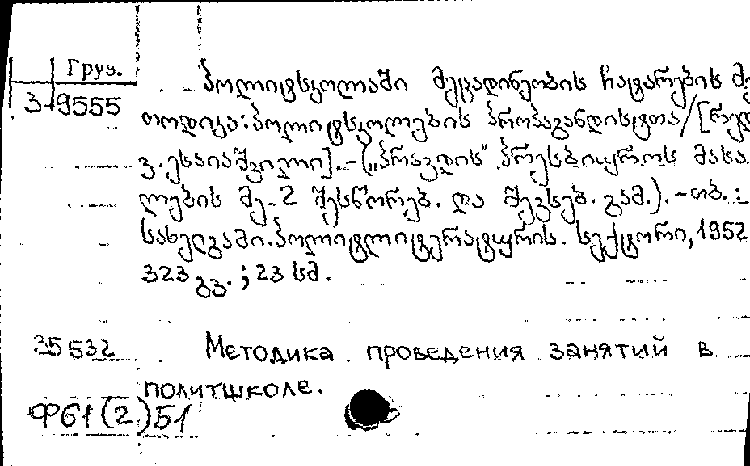 Груз.
პოლიტსკოლაში მეცადინეობის ჩატარების მე
ვ-9555
თოდიკა: პოლიტსკოლების პროპაგანდისტთა/[რედ
ვ. ესაიაშვილი] - („პრავდის" პრესბიუროს მასა
ლების მე-2 შესწორებ. და შევსებ. გამ.). - თბ.:
სახელგამი. პოლიტლიტერატურის. სექტორი, 1952
323 გვ.; 23 სმ.
35532
Методика проведения занятий в
политшколе.
Ф61(2)51